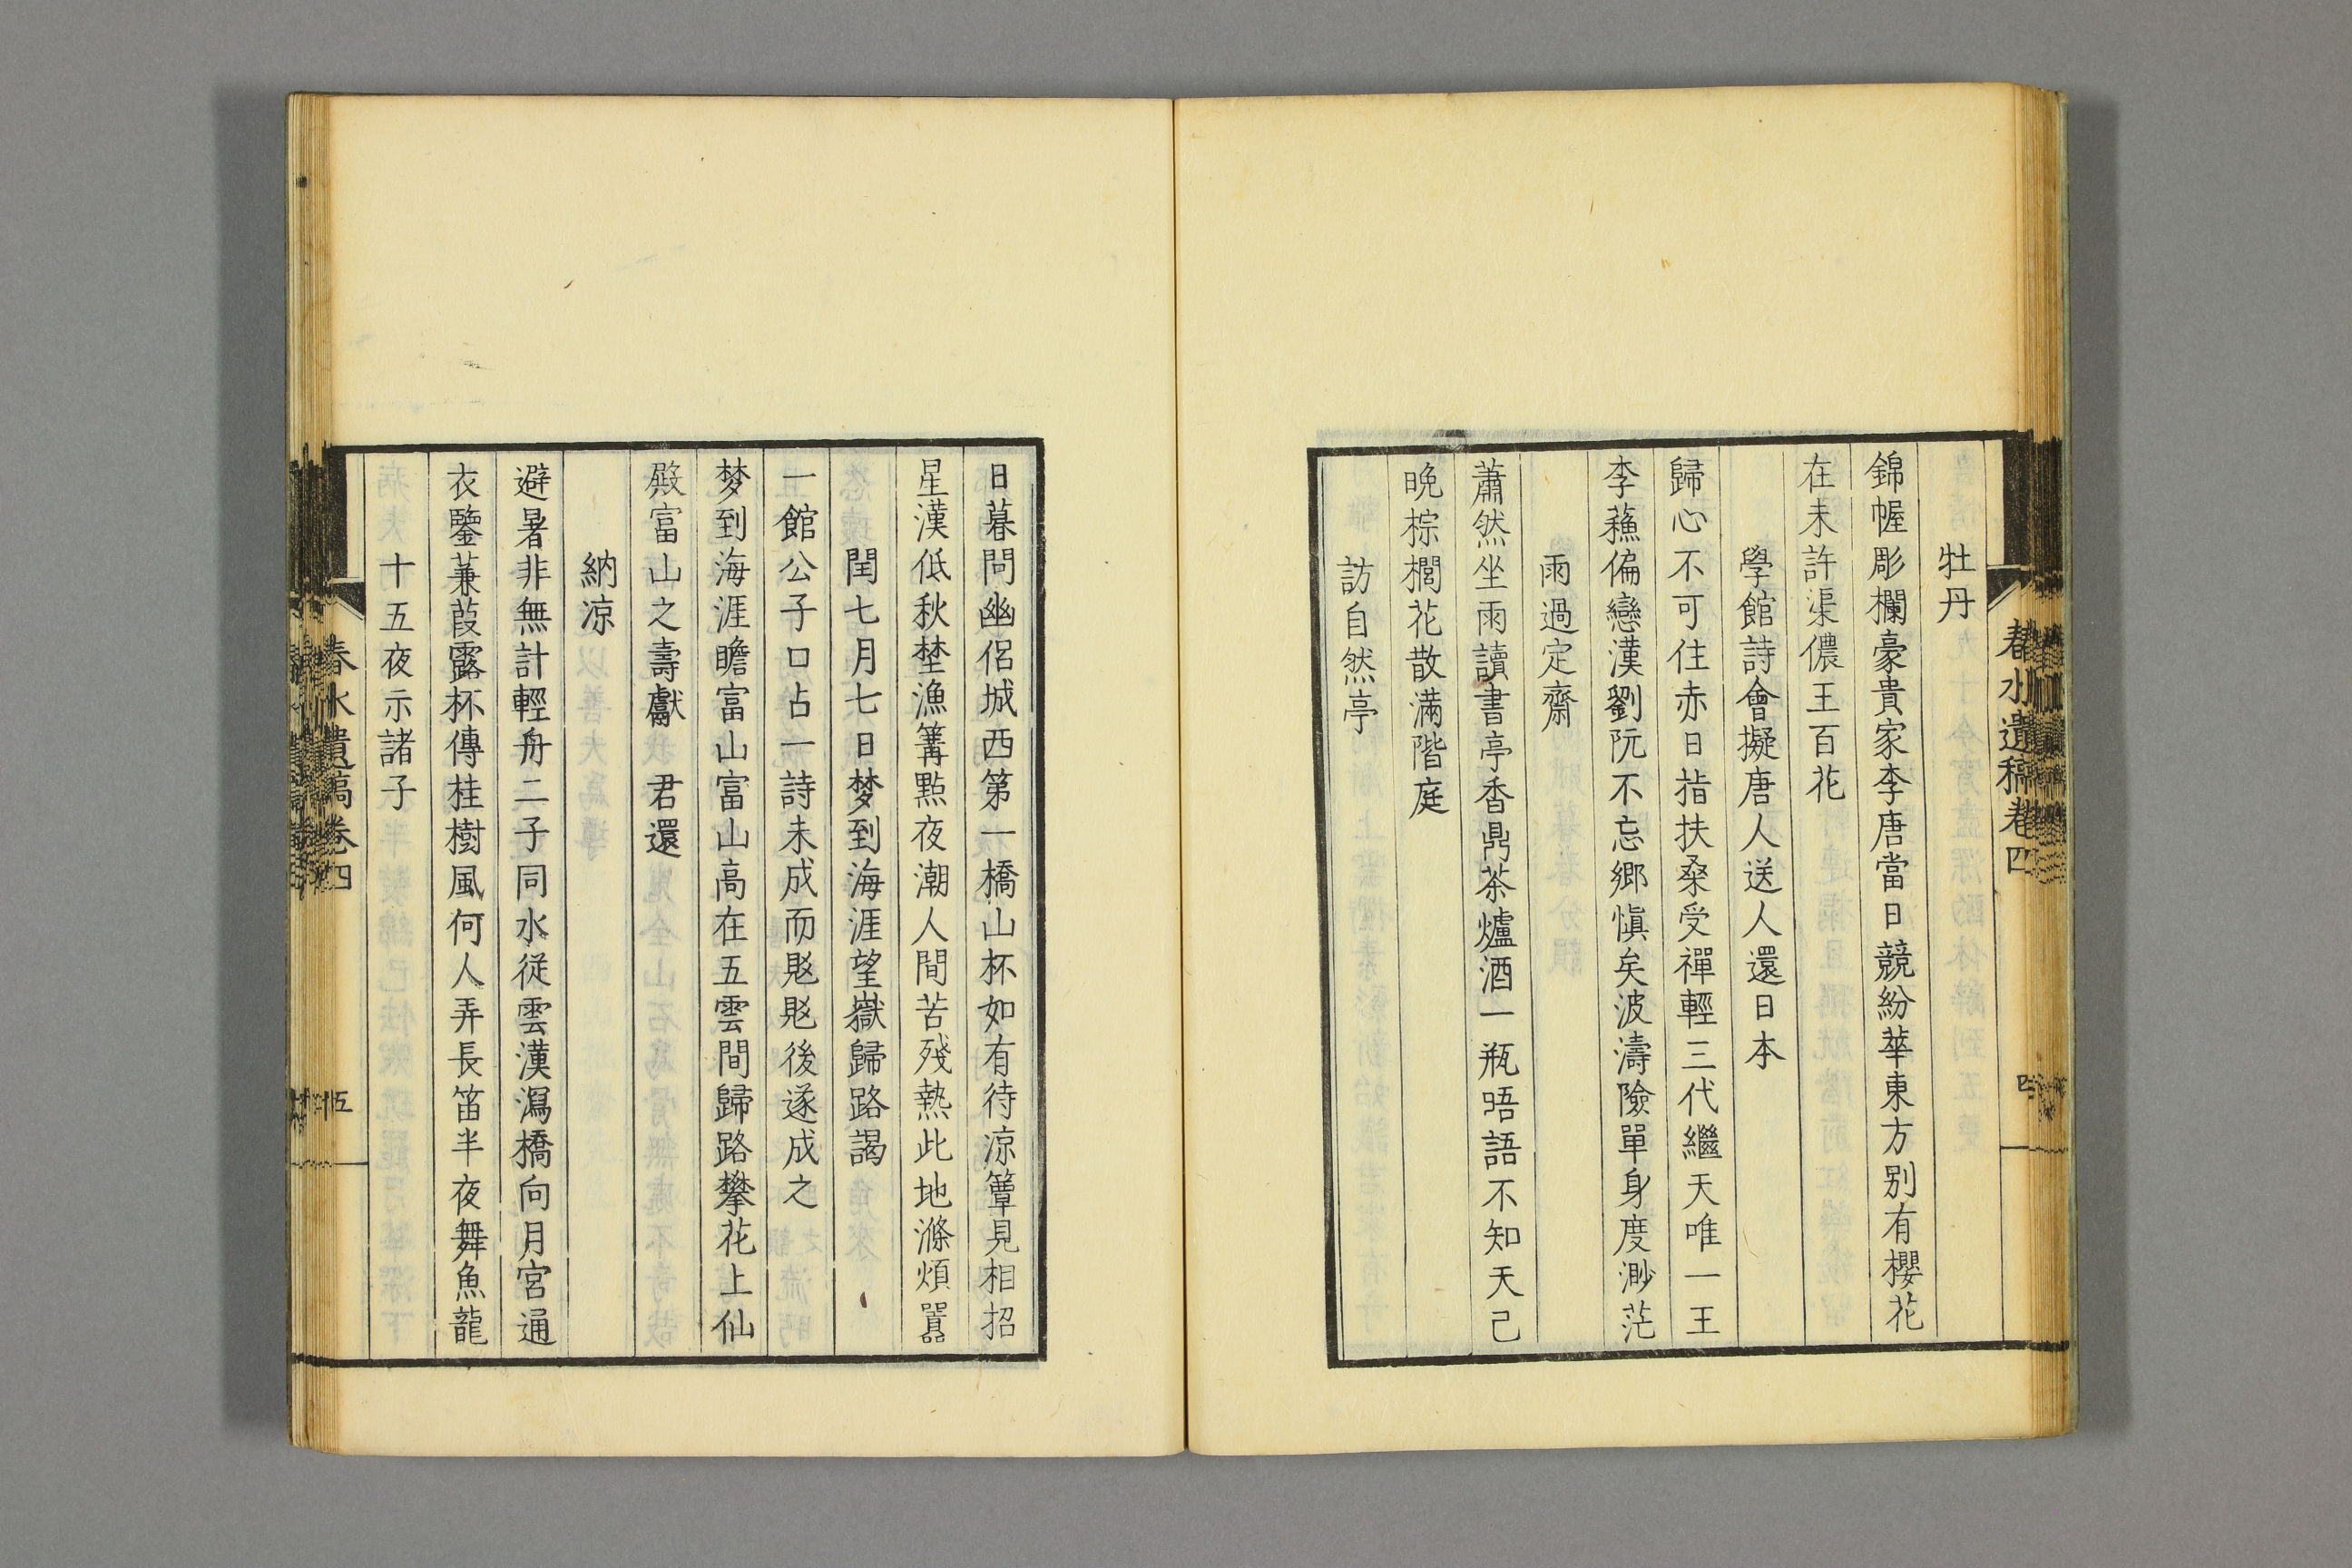 春水遺稿卷四
四
牡丹
錦幄彫欄豪貴家李唐當日競紛華東方别有櫻花
在未許渠儂王百花
學館詩會擬唐人送人還日本
歸心不可住赤日指扶桑受禪輕三代繼天唯一王
李蘓偏戀漢劉阮不忘鄉愼矣波濤險單身度渺茫
雨過定齋
蕭然坐雨讀書亭香鼎茶爐酒一瓶晤語不知天已
晚棕櫚花散滿階庭
訪自然亭
日暮問幽侶城西第一橋山杯如有待凉簟見相招
星漢低秋埜漁篝點夜潮人間苦殘熱此地滌煩囂
閏七月七日梦到海涯望嶽歸路謁
一館公子口占一詩未成而覐覐後遂成之
梦到海涯瞻富山富山高在五雲間歸路攀花上仙
殿富山之壽獻 君還
納凉
避暑非無計輕舟二子同水從雲漢瀉橋向月宮通
衣鑒蒹葭露杯傳桂樹風何人弄長笛半夜舞魚龍
十五夜示諸子
春水遺稿卷四
五